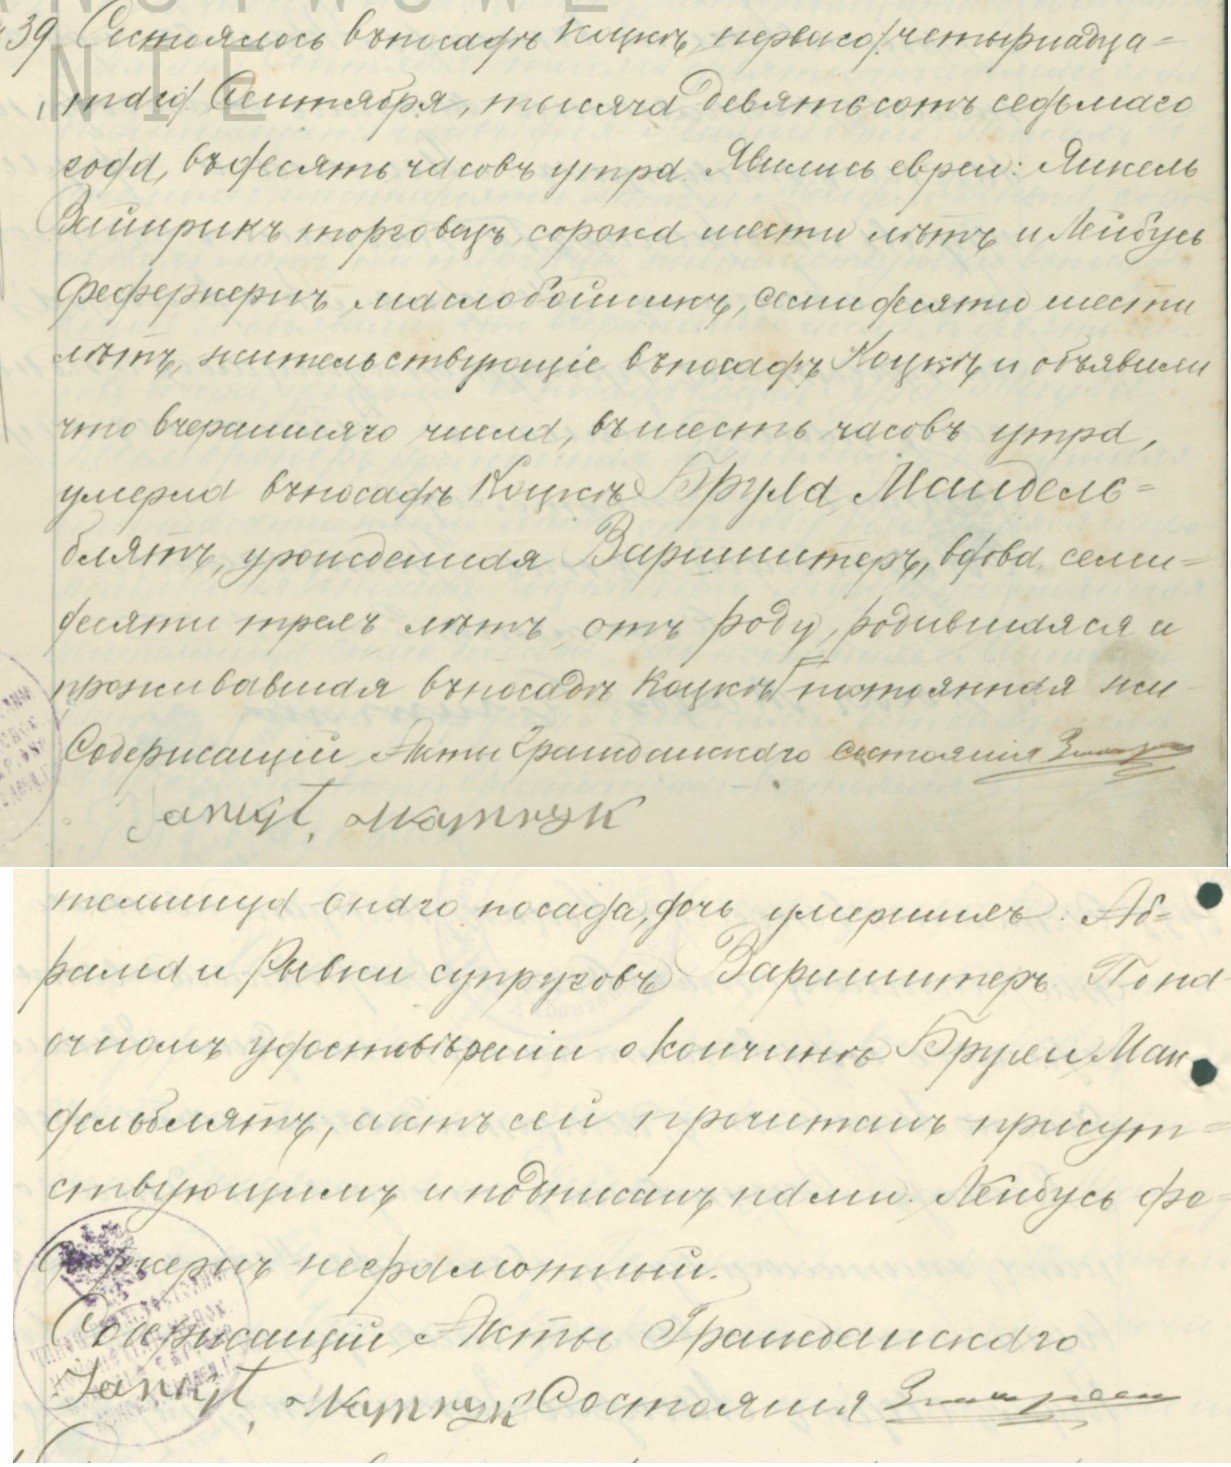 39 Состоялось въ посадѣ Коцкѣ, перваго/четырнадца=
таго/ Сентября, тысяча девятьсотъ седьмаго
года, въ десять часовъ утра. Явились евреи: Янкель
Вайнрикъ торговецъ, сорока шести лѣтъ и Лейбусь
Феферкернъ маслобойникъ, семидесяти шести
лѣтъ, жительствующіе въ посадѣ Коцкѣ и объявили
что вчерашняго числа, въ шесть часовъ утра,
умерла въ посадѣ Коцкѣ Брула Мандель=
блятъ, урожденная Варшнитеръ, вдова, семи=
десяти трехъ лѣтъ отъ роду, родившаяся и
проживавшая въ посадѣ Коцкѣ постоянная жи
Содержащій Акты Гражданскаго Состоянія
тельница онаго посада, дочь умершихъ: Аб=
рама и Рывки супруговъ Варшнитеръ. По на
очномъ удостовѣреніи о кончинѣ Брули Ман
дельблятъ, актъ сей прочитанъ присут=
ствующимъ и подписанъ нами. Лейбусь Фе
феркернъ неграмотный.
Содержащій Акты Гражданскаго
Состоянія